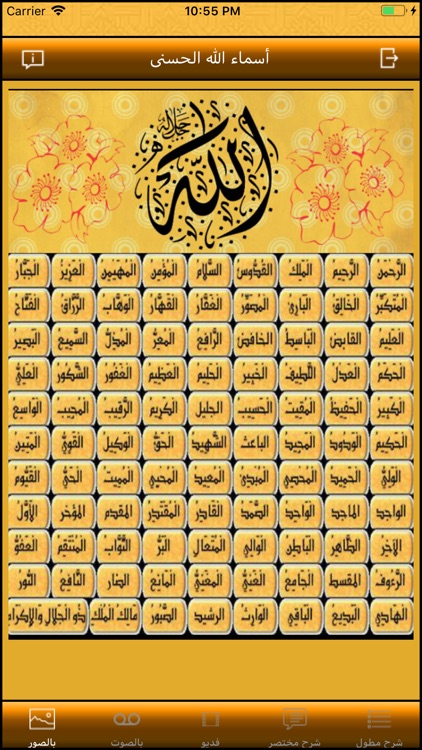 Carrier 10:55 PM
أسماء الله الحسنى
الله جل جلاله
الرَّحْمَنُ الرَّحِيمُ المَلِكُ القُدُّوسُ السَّلَامُ المُؤْمِنُ المُهَيْمِنُ العَزِيزُ الجَبَّارُ
المُتَكَبِّرُ الخَالِقُ البَارِئُ المُصَوِّرُ الغَفَّارُ القَهَّارُ الوَهَّابُ الرَّزَّاقُ الفَتَّاحُ
العَلِيمُ القَابِضُ البَاسِطُ الخَافِضُ الرَّافِعُ المُعِزُّ المُذِلُّ السَّمِيعُ البَصِير
الحَكَمُ العَدْلُ اللَّطِيفُ الخَبِيرُ الحَلِيمُ العَظِيمُ الغَفُورُ الشَّكُورُ العَلِيُّ
الكَبِيرُ الحَفِيظُ المقيت الحسيب الجليل الكَرِيم الرقيب المجيب الواسع
الحَكِيمُ الوَدُودُ المجيد الباعث الشَّهِيدُ الحَقُّ الوكيل القَوِيُّ المَتِين
الوَلِيُّ الحميد المُحْصِي المُبْدِئُ المُعِيدُ المُحْيِي المميت الحَيُّ القَيُّومُ
الواجد الماجد الواحد الصَّمَدُ القَادِرُ المُقْتَدِرُ المقدم المؤخر الأَوَّلُ
الآخِرُ الظَّاهِرُ البَاطِنُ الوَالِي المُتَعَالُ البَرُّ التَّوَّابُ المُنْتَقِمُ العَفُوُّ
الرَّءُوفُ المقسط الجَامِعُ الغَنِيُّ المُغْنِيُّ المَانِعُ الضار النَّافِعُ النُّورُ
الهَادِي البَدِيعُ البَاقِي الوَارِثُ الرشيد الصَّبُورُ مَالِكُ المُلْكِ ذُو الجَلَالِ وَالإِكْرَام
شرح مطول شرح مختصر فديو بالصوت بالصور